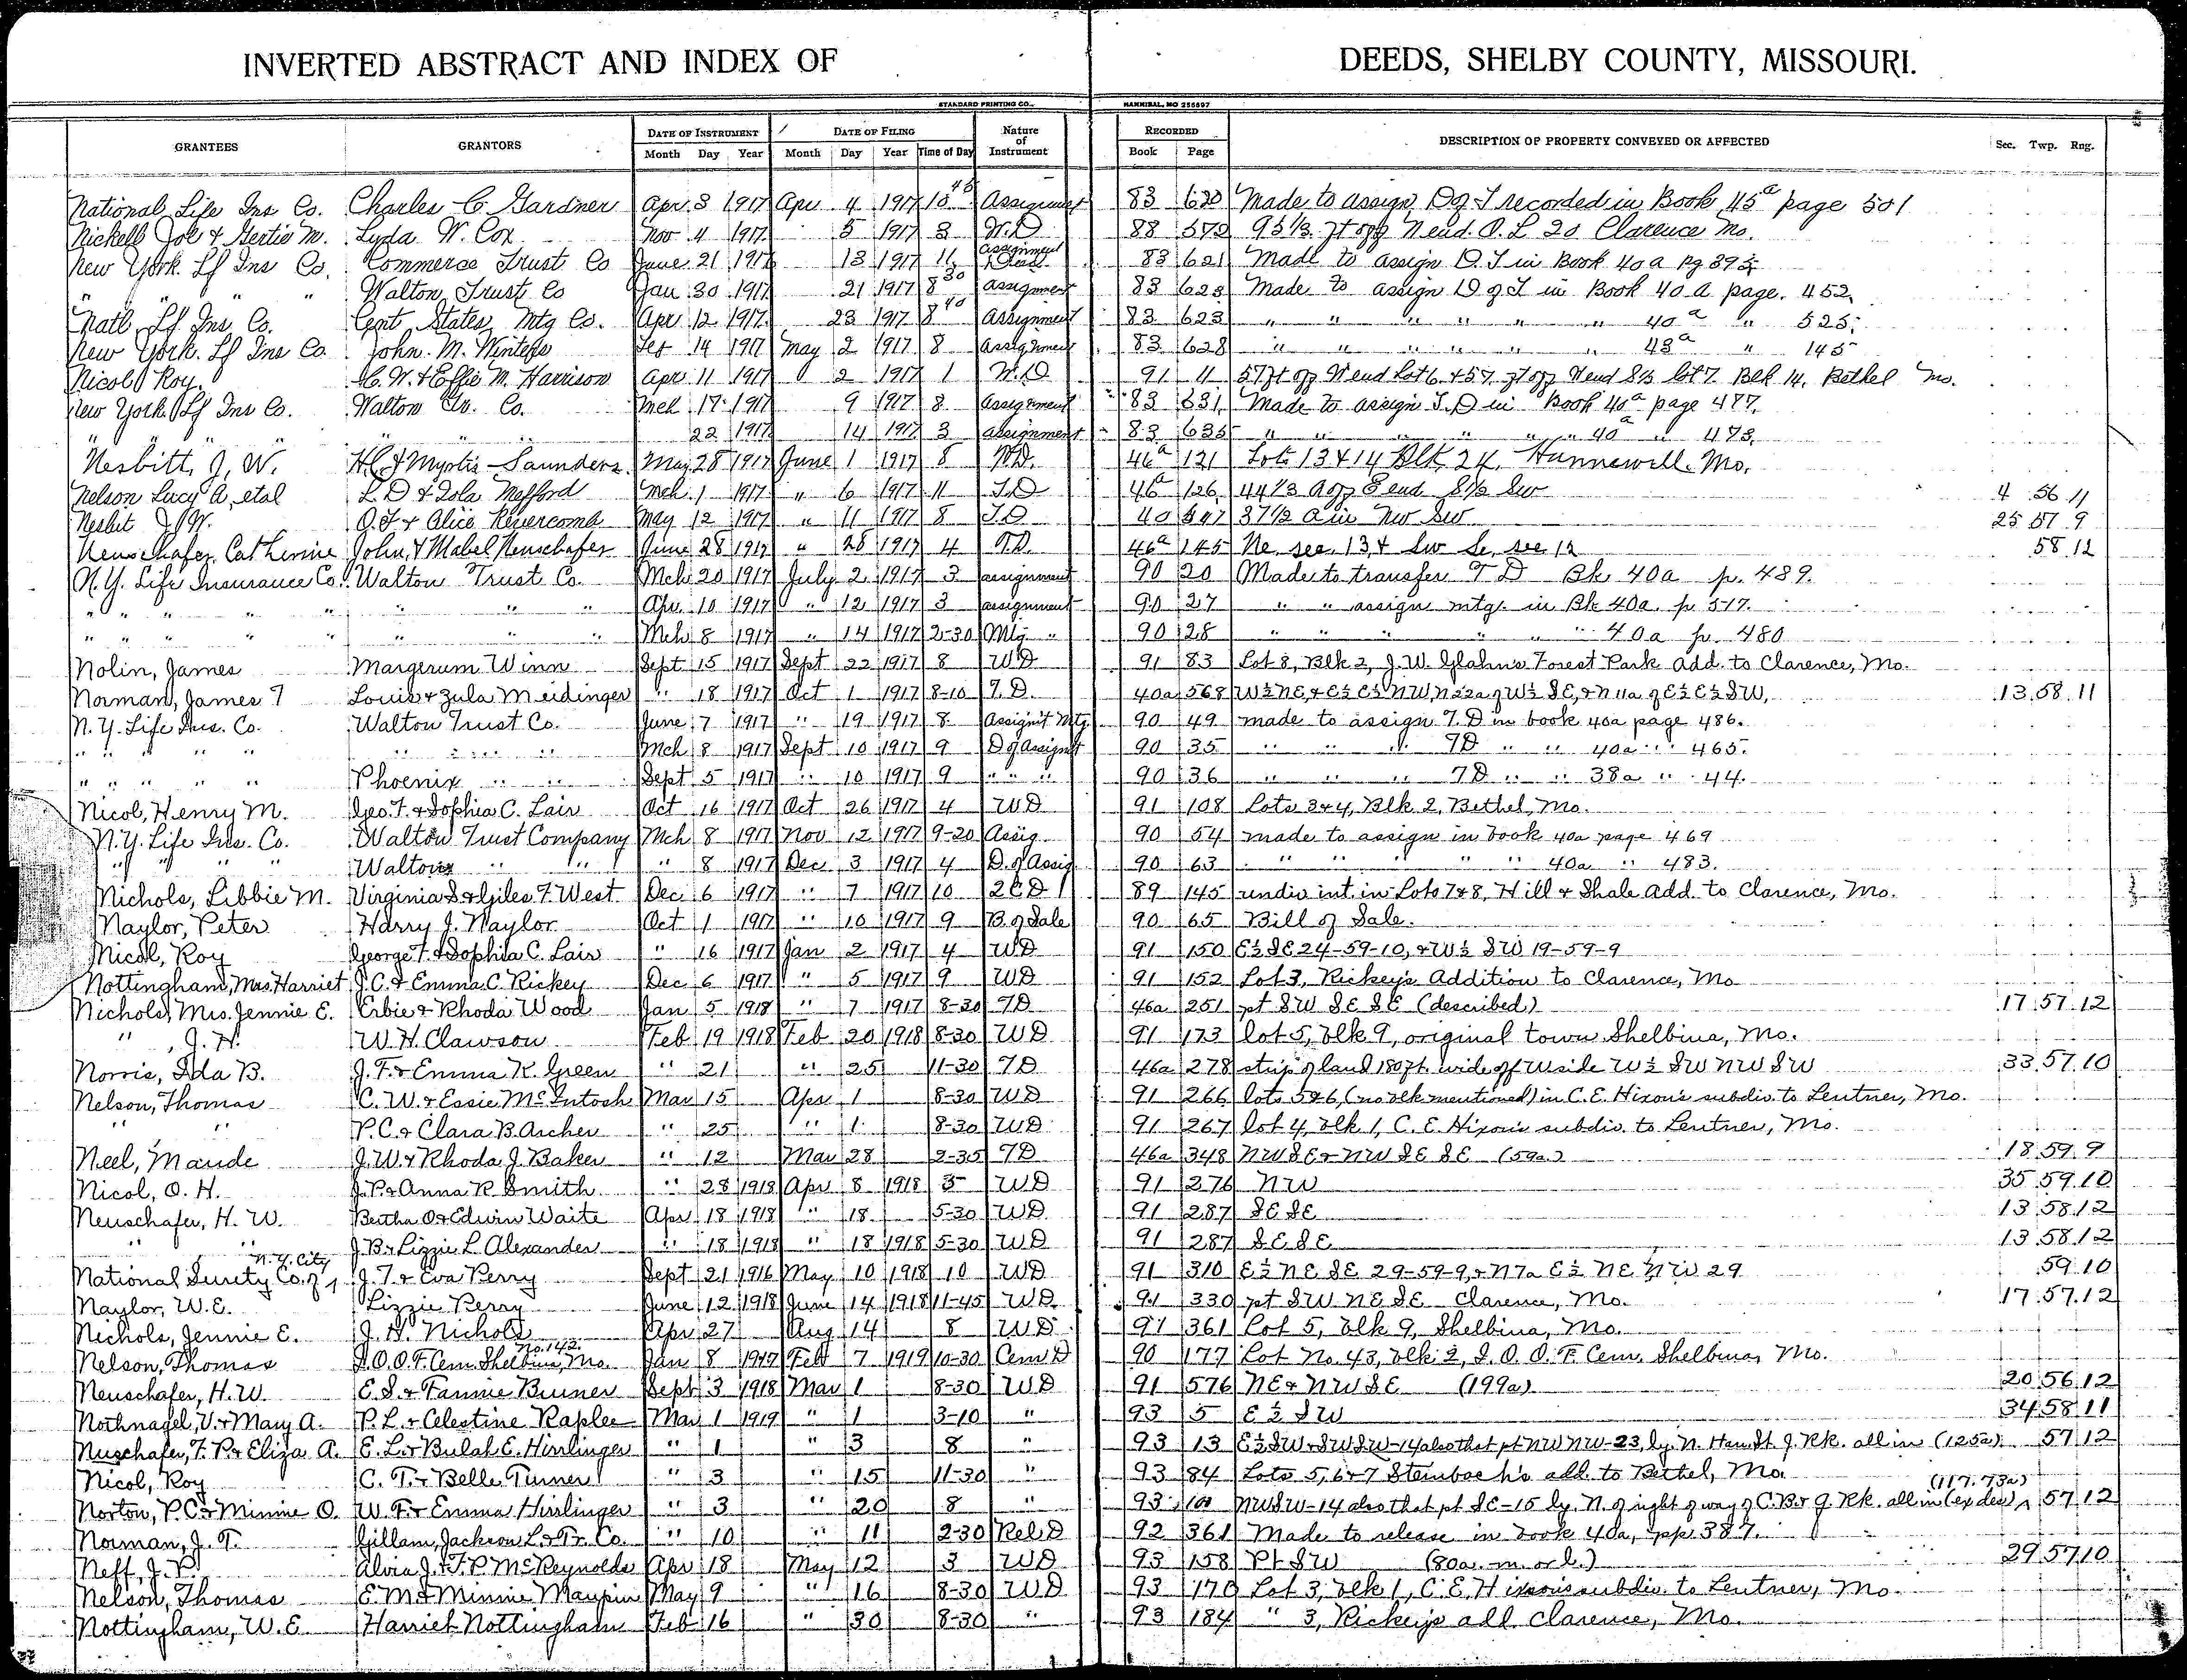 INVERTED ABSTRACT AND INDEX OF DEEDS, SHELBY COUNTY, MISSOURI.
STANDARD PRINTING CO., HANNIBAL, MO 255697
GRANTEES GRANTORS DATE OF INSTRUMENT DATE OF FILING Nature of Instrument RECORDED DESCRIPTION OF PROPERTY CONVEYED OR AFFECTED Sec. Twp. Rng.
Month Day Year Month Day Year Time of Day Book Page
National Life Ins Co. Charles C. Gardner Apr 3 1917 Apr 4 1917 10 45 Assignment 83 620 Made to assign D of T recorded in Book 45a page 501
Nickell Joe & Gertie M. Lyda W. Cox Nov 4 1917 5 1917 3 W.D 88 572 95 1/3 ft off N end O.L 20 Clarence Mo.
New York Lf Ins Co. Commerce Trust Co June 21 1917 13 1917 11 assignment 83 621 Made to assign D.T in Book 40a Pg 395
" " " " Walton Trust Co Jan 30 1917 21 1917 8 30 assignment 83 623 Made to assign D of T in Book 40 a page. 452
Natl Lf Ins Co. Cent States Mtg Co. Apr 12 1917 23 1917 8 40 Assignment 83 623 " " " " " " 40a " 525
New York Lf Ins Co John M. Winters 14 1917 May 2 1917 8 Assignment 83 628 " " " " " " 43a " 145
Nicol Roy. H. W. & Effie M. Harrison Apr 11 1917 2 1917 1 W.D 91 11 57 ft off N end Lot 6 & 57 ft off N end S½ lot 7 Blk 14, Bethel Mo.
New York Lf Ins Co. Walton Tr. Co. Mch 17 1917 9 1917 8 Assignment 83 631 Made to assign T.D in Book 40a page 487.
" " " " " " 22 1917 14 1917 3 assignment 83 635 " " " " " " 40a " 473.
Nesbitt, J. W. H.C & Myrtis Saunders May 28 1917 June 1 1917 8 46a 121 Lots 13 & 14 Blk 24 Hunnewell Mo.
Nelson Lucy A, etal L. D & Iola Mefford Mch 1 1917 " 6 1917 11 T.D 46a 126 44 1/3 A off E end S½ Sw 4 56 11
Nesbit J W. O.T & Alice Revercomb May 12 1917 " 11 1917 8 T.D 40 547 37½ a in NW SW 25 57 9
Neuschafer, Catherine John & Mabel Neuschafer June 28 1917 " 28 1917 4 T.D. 46a 145 Ne. sec. 13 & Sw Se, sec 12 58 12
N.Y. Life Insurance Co. Walton Trust Co. Mch 20 1917 July 2 1917 3 assignment 90 20 Made to transfer T D Bk 40a p. 489.
" " " " " " " Apr. 10 1917 " 12 1917 3 assignment 90 27 " " assign mtg. in Bk 40a. p 517.
" " " " " " " Mch 8 1917 " 14 1917 2-30 Mtg " 90 28 " " " " " 40a p. 480
Nolin, James Margerum Winn Sept 15 1917 Sept 22 1917 8 WD 91 83 Lot 8, Blk 2, J.W. Glahn's Forest Park Add. to Clarence, Mo.
Norman, James T Louis & Zula Meidinger " 18 1917 Oct 1 1917 8-10 T.D. 40a 568 W½NE, & E½ E½ NW, N22a of W½ SE, & N 11a of E½ E½ SW, 13 58 11
N.Y. Life Ins. Co. Walton Trust Co. June 7 1917 " 19 1917 8 Assign't Mtg. 90 49 made to assign T.D in book 40a page 486.
" " " " " " " Mch 8 1917 Sept 10 1917 9 D of Assignt 90 35 " " " TD " " 40a " 465.
" " " " " Phoenix " " Sept 5 1917 " 10 1917 9 " " " 90 36 " " " TD " " 38a " 44.
Nicol, Henry M. Geo. T. & Sophia C. Lair Oct 16 1917 Oct 26 1917 4 WD 91 108 Lots 3&4, Blk 2, Bethel, Mo.
N.Y. Life Ins. Co. Walton Trust Company Mch 8 1917 Nov 12 1917 9-20 Assig. 90 54 made to assign in book 40a page 469
" " " " Walton " " " 8 1917 Dec 3 1917 4 D. of Assig 90 63 " " " " " 40a " 483.
Nichols, Libbie M. Virginia S. & Giles F. West Dec 6 1917 " 7 1917 10 2CD 89 145 undiv int. in Lots 7&8, Hill & Shale Add. to Clarence, Mo.
Naylor, Peter Harry J. Naylor Oct 1 1917 " 10 1917 9 B. of Sale 90 65 Bill of Sale.
Nicol, Roy George T. & Sophia C. Lair " 16 1917 Jan 2 1917 4 WD 91 150 E½ SE 24-59-10, & W½ SW 19-59-9
Nottingham, Mrs. Harriet J.C. & Emma C. Rickey Dec 6 1917 " 5 1917 9 WD 91 152 Lot 3, Rickey's Addition to Clarence, Mo
Nichols, Mrs. Jennie E. Erbie & Rhoda Wood Jan 5 1918 " 7 1917 8-30 TD 46a 251 pt SW SE SE (described) 17 57 12
" , J. H. W. H. Clawson Feb 19 1918 Feb 20 1918 8-30 WD 91 173 lot 5, blk 9, original town Shelbina, Mo.
Norris, Ida B. J. F. & Emma K. Green " 21 " 25 11-30 TD 46a 278 strip of land 180 ft. wide off W side W½ SW NW SW 33 57 10
Nelson, Thomas C. W. & Essie McIntosh Mar 15 Apr 1 8-30 WD 91 266 lots 5&6, (no blk mentioned) in C. E. Hixon's subdiv. to Lentner, Mo.
" " P.C. & Clara B. Archer " 25 " 1 8-30 WD 91 267 lot 4, blk 1, C. E. Hixon's subdiv. to Lentner, Mo.
Neel, Maude J.W. & Rhoda J. Baker " 12 Mar 28 2-35 TD 46a 348 NW SE & NW SE SE (59a.) 18 59 9
Nicol, O. H. J.P. & Anna R. Smith " 28 1918 Apr 8 1918 3 WD 91 276 NW 35 59 10
Neuschafer, H. W. Bertha O. & Edwin Waite Apr 18 1918 " 18 5-30 WD 91 287 SE SE 13 58 12
" " J. B. & Lizzie L. Alexander " 18 1918 " 18 1918 5-30 WD 91 287 SE SE 13 58 12
National Surety Co. of N.Y. City J. T. & Eva Perry Sept 21 1916 May 10 1918 10 WD 91 310 E½ NE SE 29-59-9, & N7a E½ NE NW 29 59 10
Naylor, W.E. Lizzie Perry June 12 1918 June 14 1918 11-45 WD 91 330 pt SW NE SE Clarence, Mo. 17 57 12
Nichols, Jennie E. J. H. Nichols Apr 27 Aug 14 8 WD 91 361 Lot 5, blk 9, Shelbina, Mo.
Nelson, Thomas I.O.O.F. Cem. Shelbina, Mo. No. 142. Jan 8 1917 Feb 7 1919 10-30 Cem D 90 177 Lot No. 43, blk 2, I. O. O. F. Cem. Shelbina, Mo.
Neuschafer, H.W. E. S. & Fannie Bumer Sept 3 1918 Mar 1 8-30 WD 91 576 NE & NW SE (199a) 20 56 12
Nothnagel, V. & Mary A. P. L. & Celestine Raplee Mar 1 1919 " 1 3-10 " 93 5 E½ SW 34 58 11
Nuschafer, F. P. & Eliza A. E. L. & Bulah E. Hirrlinger " 1 " 3 8 " 93 13 E½SW & SW SW-14 also that pt NW NW-23, ly. N. Han. St. J. RR. all in (125a) 57 12
Nicol, Roy C. T. & Belle Turner " 3 " 15 11-30 " 93 84 Lots 5, 6 & 7 Steinbach's add. to Bethel, Mo.
Norton, P.C. & Minnie O. W. F. & Emma Hirrlinger " 3 " 20 8 " 93 101 NW SW-14 also that pt SE-15 ly. N. of right of way of C.B. & Q. RR. all in (ex des) (117.73a) 57 12
Norman, J. T. Gillam, Jackson L. & Tr. Co. " 10 " 11 2-30 Rel. D 92 361 Made to release in book 40a, pp 387.
Neff, J. P. Alvia J. & F. P. McReynolds Apr 18 May 12 3 WD 93 158 Pt SW (80a. m. or l.) 29 57 10
Nelson, Thomas E. M. & Minnie Maupin May 9 " 16 8-30 WD 93 170 Lot 3, blk 1, C. E. Hixon's subdiv. to Lentner, Mo.
Nottingham, W. E. Harriet Nottingham Feb 16 " 30 8-30 " 93 184 " 3, Rickey's add. Clarence, Mo.